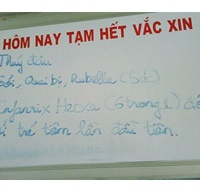 HÔM NAY TẠM HẾT VẮC XIN
Thủy đậu
Sởi, Quai bị, Rubella (Sởi
Infanrix Hexa (6 trong 1)
trẻ tiêm lần đầu tiên.